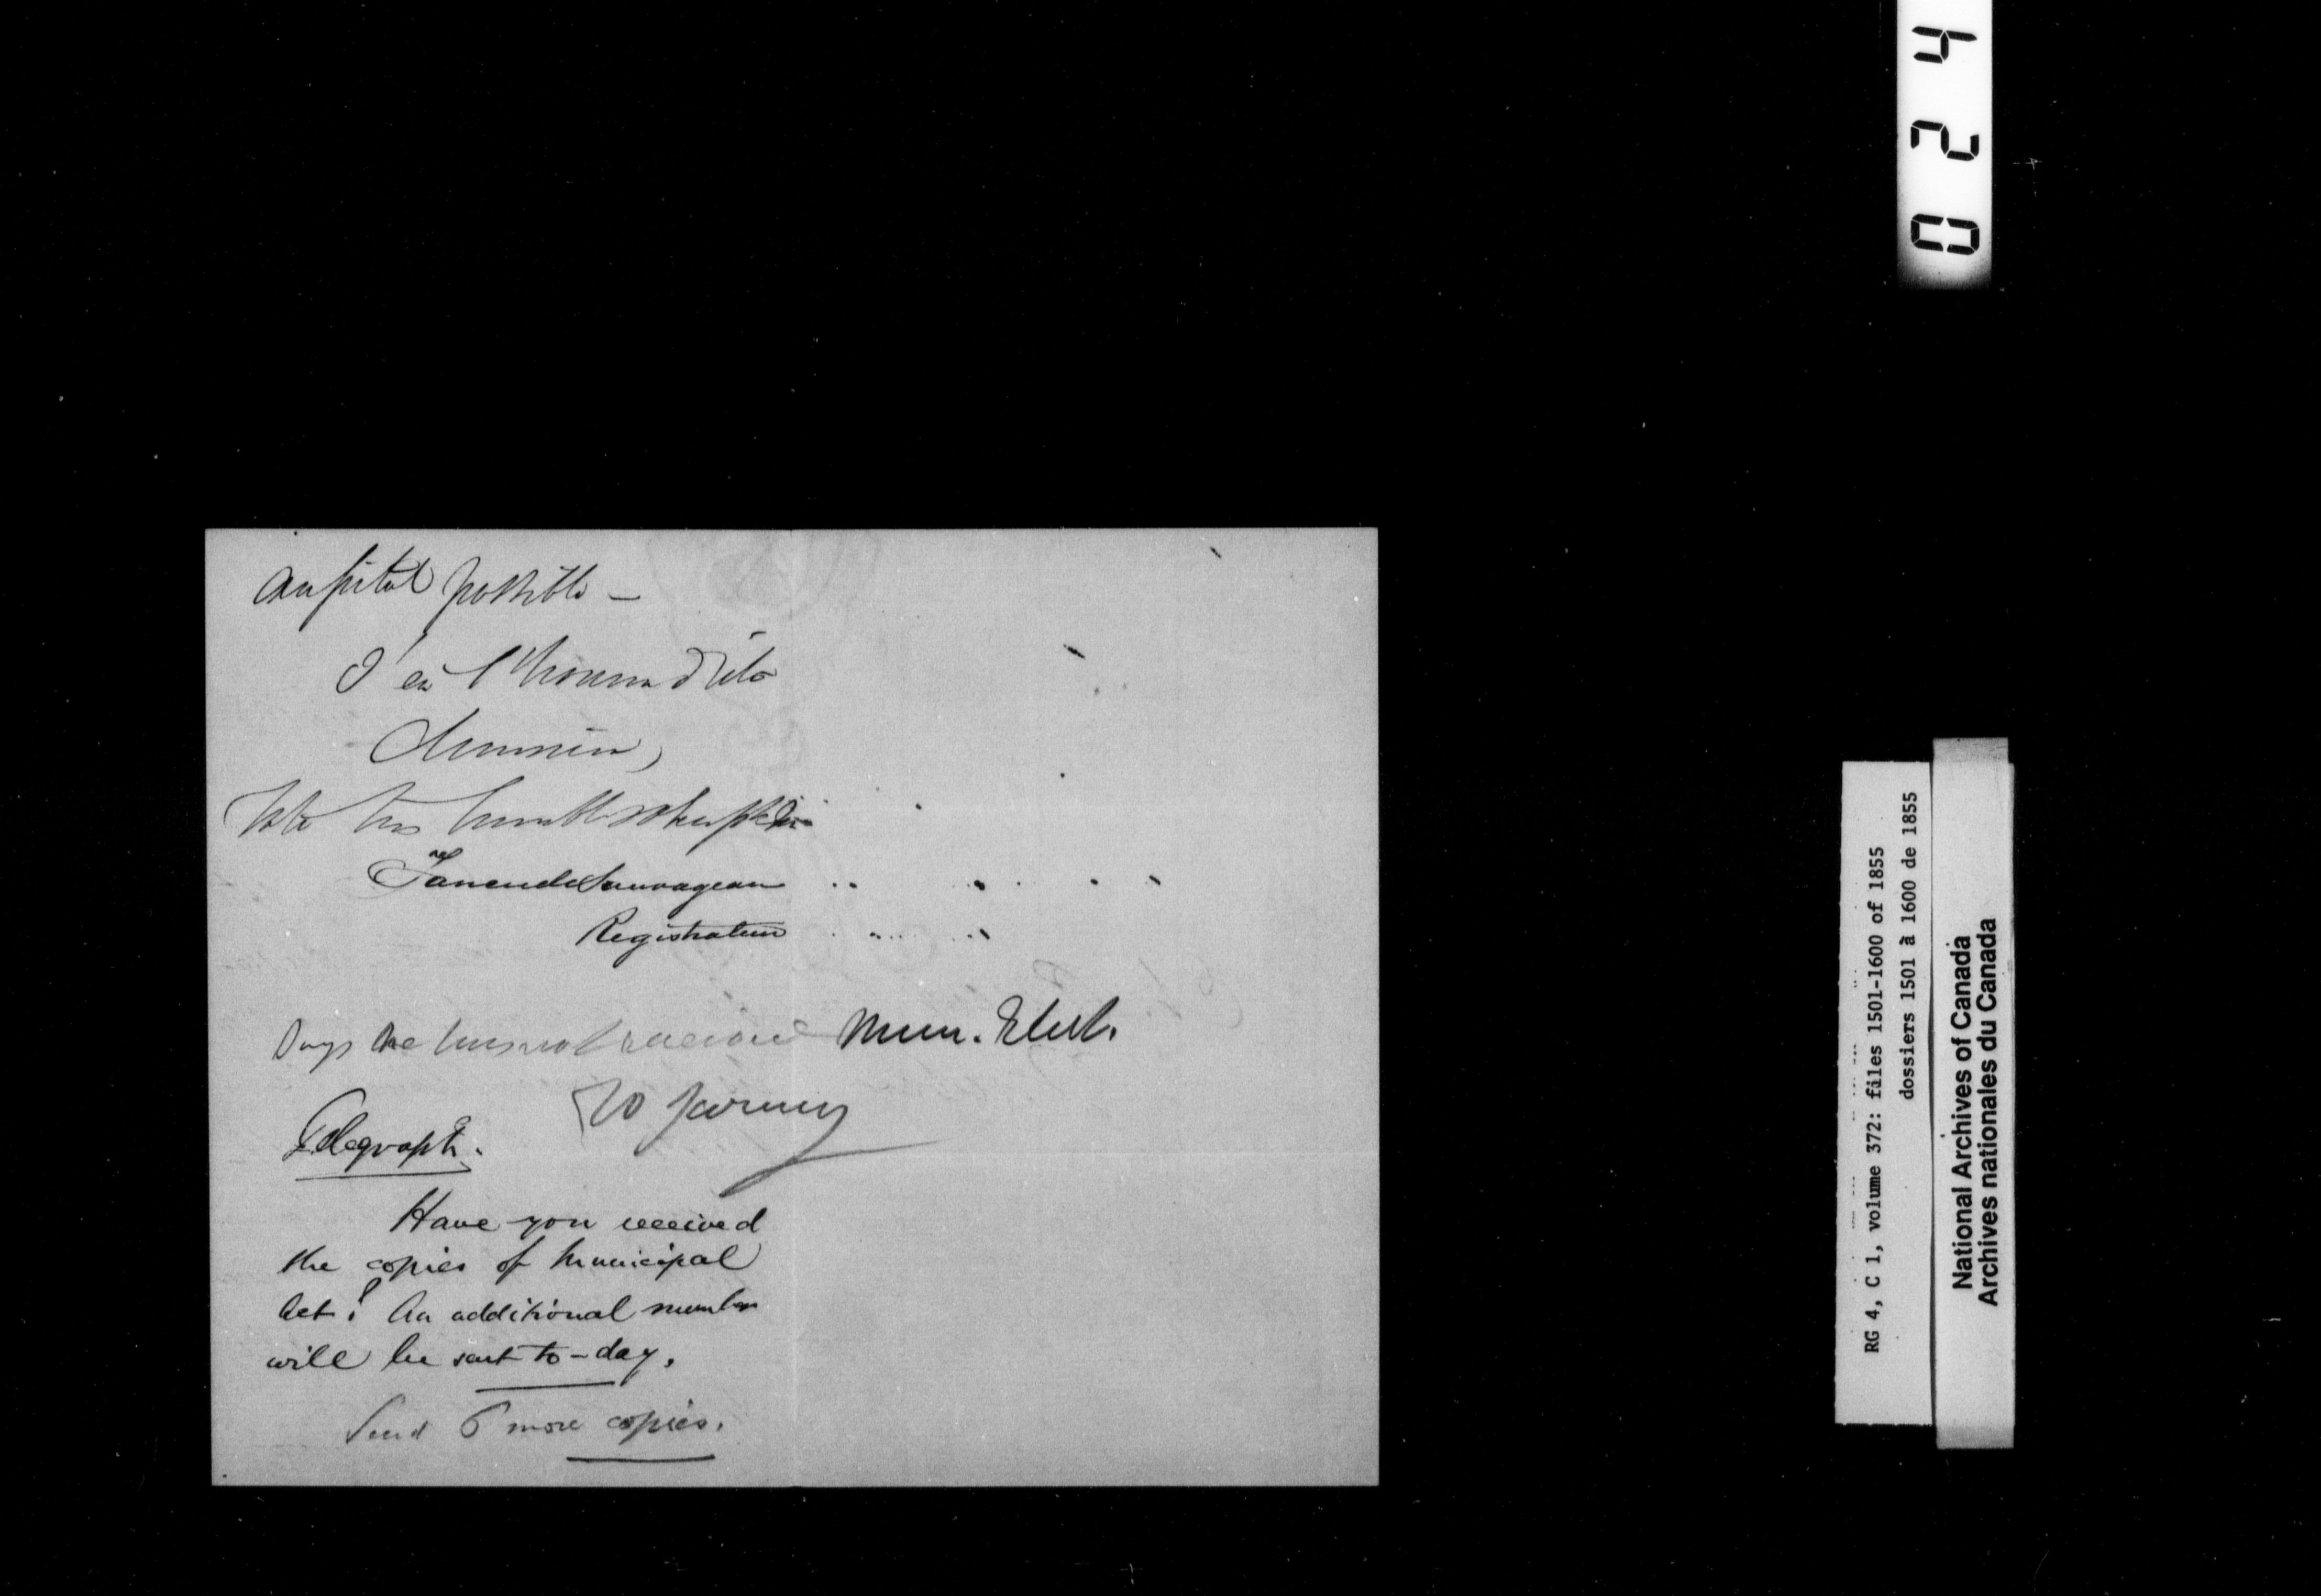 aussitôt possible —
J'ai l'honneur d'être
Monsieur,
Votre très humble serviteur
Tancrède Sauvageau
Registrateur
Says he has not received Mun. Elect.
Telegraph.
Have you received
the copies of Municipal
Act? An additional number
will be sent to-day.
Send 6 more copies.
0 2 4
RG 4, C 1, volume 372: files 1501-1600 of 1855
dossiers 1501 à 1600 de 1855
National Archives of Canada
Archives nationales du Canada